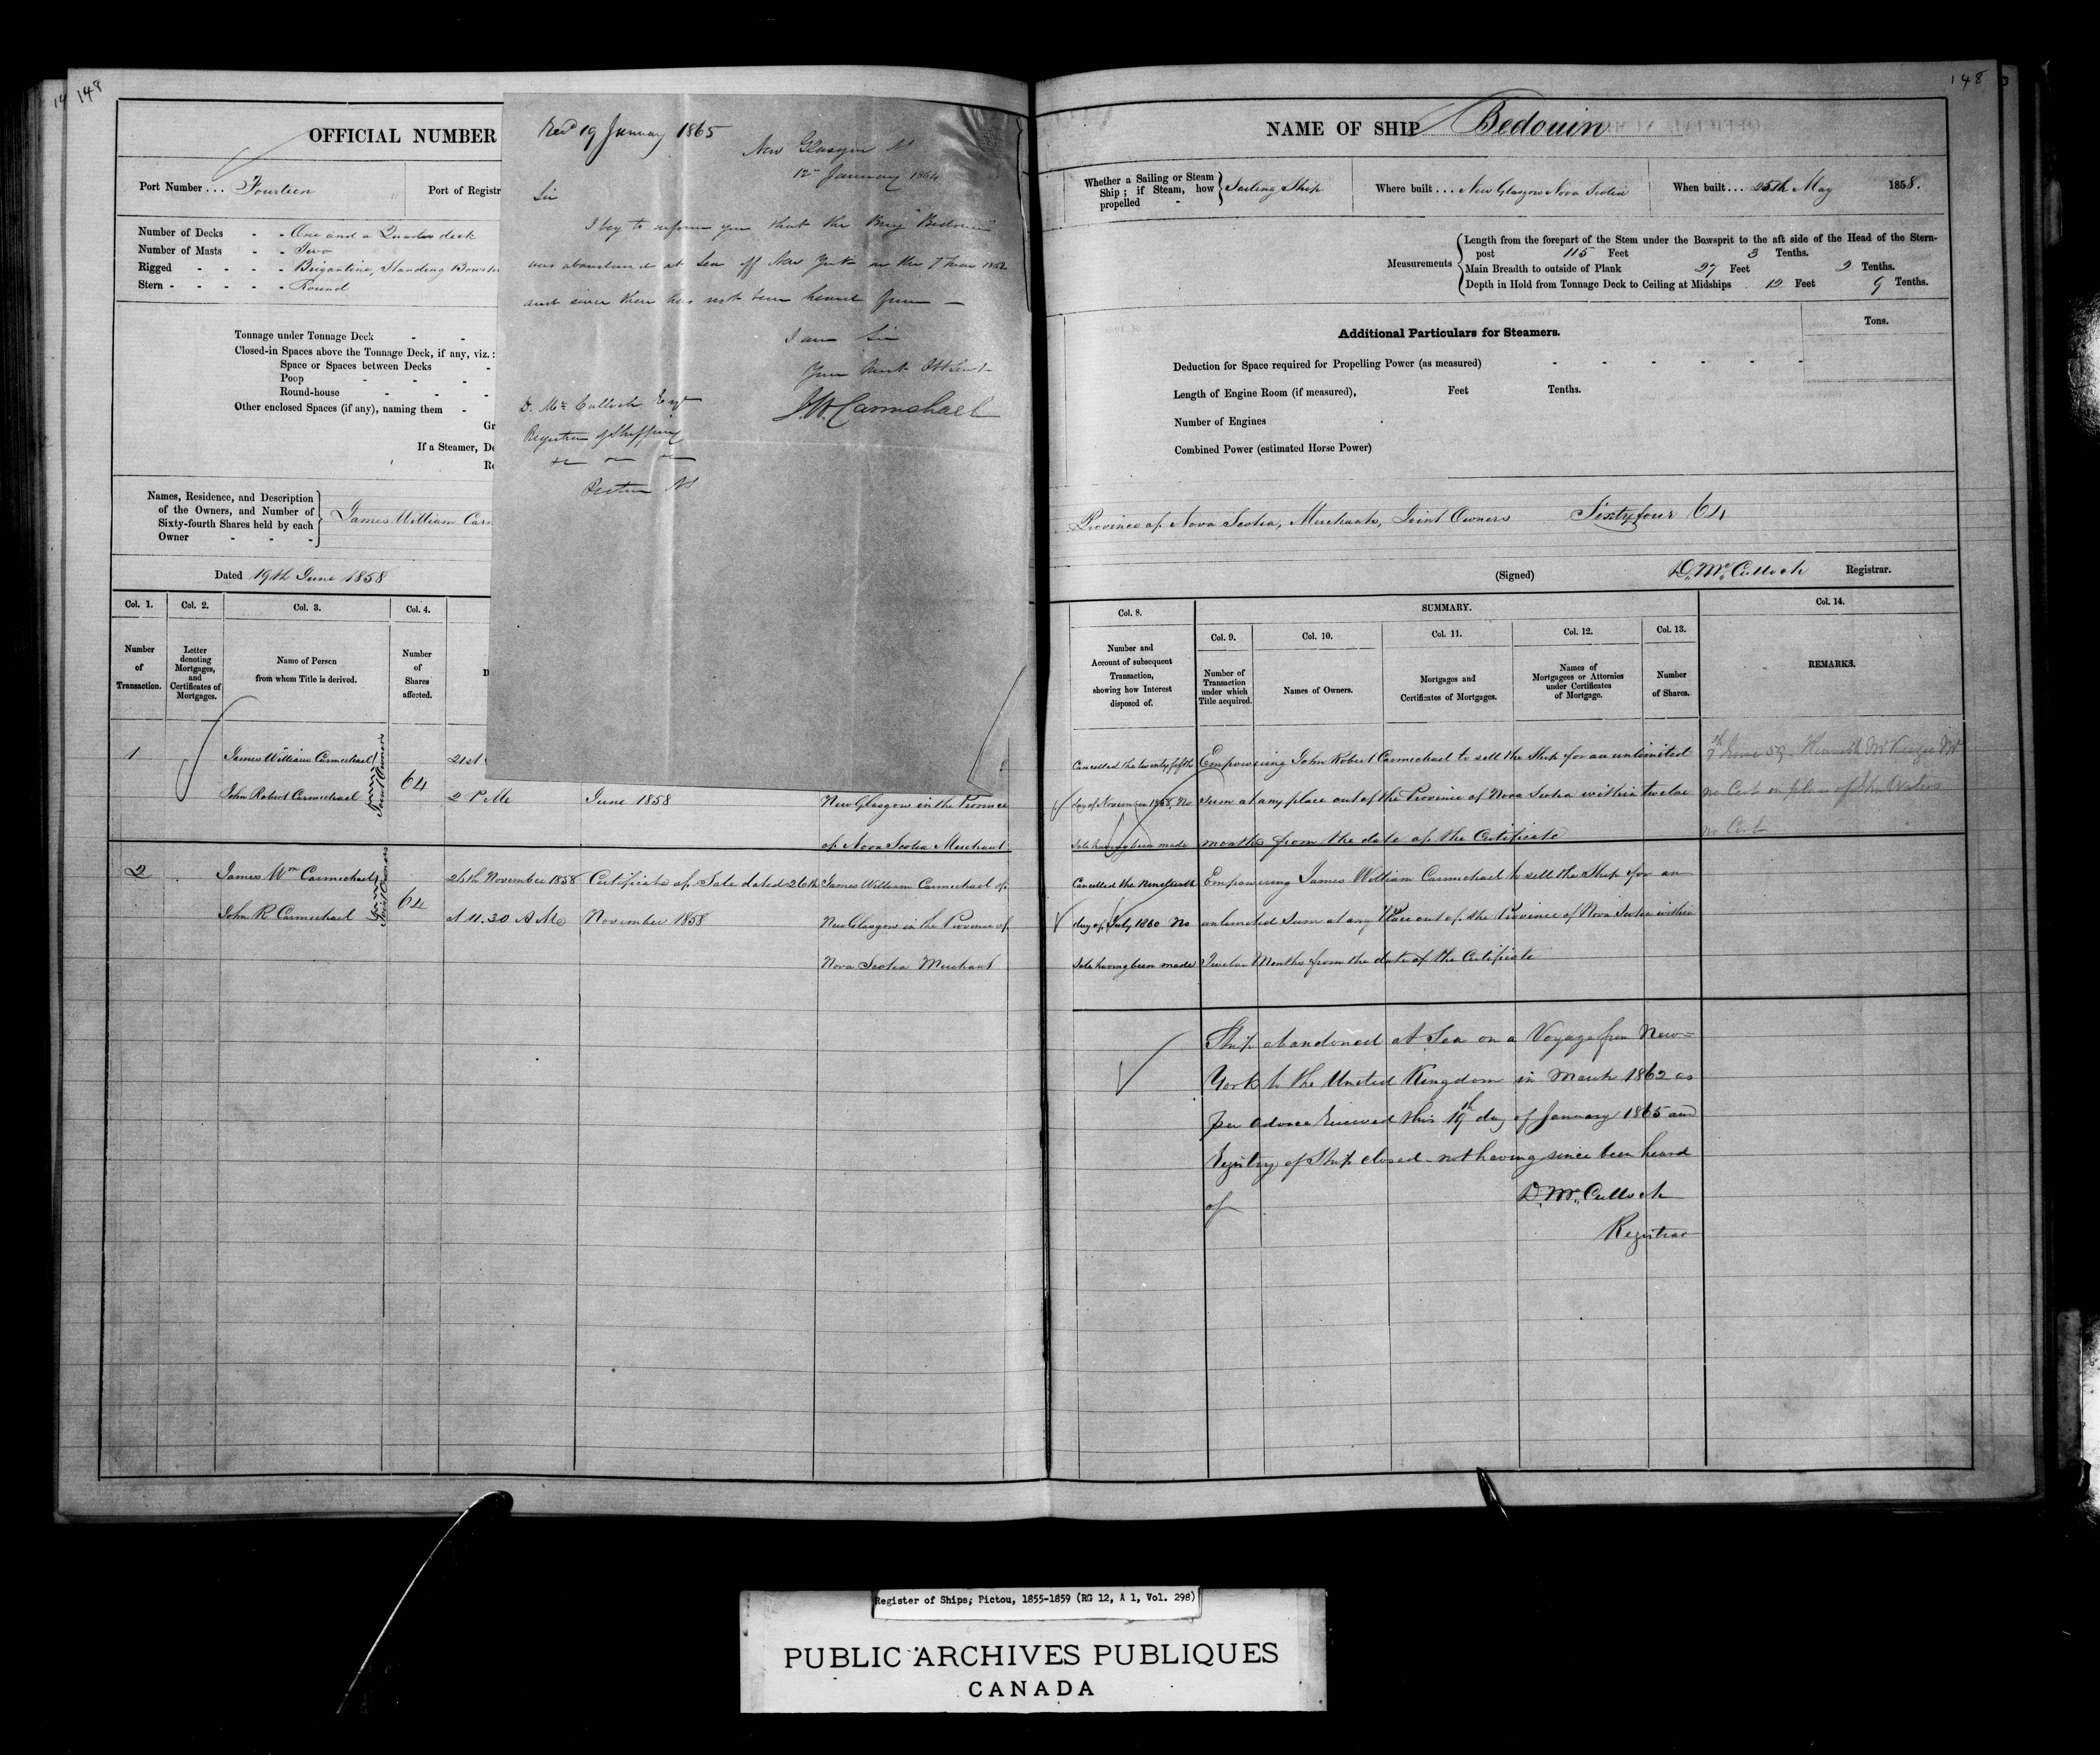 148
OFFICIAL NUMBER
Port Number ... Fourteen
Port of Registr
Number of Decks - - One and a Quarter deck
Number of Masts - - Two
Rigged - - - - Brigantine, Standing Bowsp
Stern - - - - - Round
Tonnage under Tonnage Deck - -
Closed-in Spaces above the Tonnage Deck, if any, viz.:
Space or Spaces between Decks -
Poop - - -
Round-house - - -
Other enclosed Spaces (if any), naming them -
Gr
If a Steamer, De
Re
Names, Residence, and Description
of the Owners, and Number of
Sixty-fourth Shares held by each
Owner - - -
James William Carm
Dated 19th June 1858
Recd 19 January 1865
New Glasgow NS
12th January 1864
Sir
I beg to inform you that the Brig "Bedouin"
was abandoned at Sea off New York on the 7 Mar 1862
and since then has not been heard from —
I am Sir
Your Most Obt Servt
J.W. Carmichael
D. McCulloch Esqr
Registrar of Shipping
Pictou NS
Col. 1.
Number
of
Transaction.
Col. 2.
Letter
denoting
Mortgages,
and
Certificates of
Mortgages.
Col. 3.
Name of Person
from whom Title is derived.
Col. 4.
Number
of
Shares
affected.
D
1
James William Carmichael
John Robert Carmichael
Joint Owners
64
21st
2 P Me
June 1858
New Glasgow in the Province
of Nova Scotia Merchant
2
James Wm Carmichael
John R Carmichael
Joint Owners
64
26th November 1858
at 11.30 A Me
Certificate of Sale dated 26th
November 1858
James William Carmichael of
New Glasgow in the Province of
Nova Scotia Merchant
148
NAME OF SHIP Bedouin
Whether a Sailing or Steam
Ship; if Steam, how
propelled -
Sailing Ship
Where built ... New Glasgow Nova Scotia
When built ... 25th May 1858.
Measurements
Length from the forepart of the Stem under the Bowsprit to the aft side of the Head of the Stern-
post 115 Feet 3 Tenths.
Main Breadth to outside of Plank 27 Feet 2 Tenths.
Depth in Hold from Tonnage Deck to Ceiling at Midships 12 Feet 9 Tenths.
Additional Particulars for Steamers.
Tons.
Deduction for Space required for Propelling Power (as measured) - - - - - -
Length of Engine Room (if measured), Feet Tenths.
Number of Engines
Combined Power (estimated Horse Power)
Province of Nova Scotia, Merchants, Joint Owners Sixty four 64
(Signed) D. McCulloch Registrar.
Col. 8.
Number and
Account of subsequent
Transaction,
showing how Interest
disposed of.
SUMMARY.
Col. 9.
Number of
Transaction
under which
Title acquired.
Col. 10.
Names of Owners.
Col. 11.
Mortgages and
Certificates of Mortgages.
Col. 12.
Names of
Mortgagees or Attornies
under Certificates
of Mortgage.
Col. 13.
Number
of Shares.
Col. 14.
REMARKS.
Cancelled the twenty fifth
day of November 1858, No
Sale having been made
Empowering John Robert Carmichael to sell the Ship for an unlimited
Sum at any place out of the Province of Nova Scotia within twelve
months from the date of the Certificate
7th June 59 Kenneth McKenzie
no Cert in place of Jno Waters
no Cert
Cancelled the Nineteenth
day of July 1860 No
Sale having been made
Empowering James William Carmichael to sell the Ship for an
unlimited Sum at any Place out of the Province of Nova Scotia within
Twelve Months from the date of the Certificate
Ship abandoned at Sea on a Voyage from New=
York to the United Kingdom in March 1862 as
per advice received this 19th day of January 1865 and
Registry of Ship closed – not having since been heard
of
D. McCulloch
Registrar
Register of Ships; Pictou, 1855-1859 (RG 12, A 1, Vol. 298)
PUBLIC ARCHIVES PUBLIQUES
CANADA